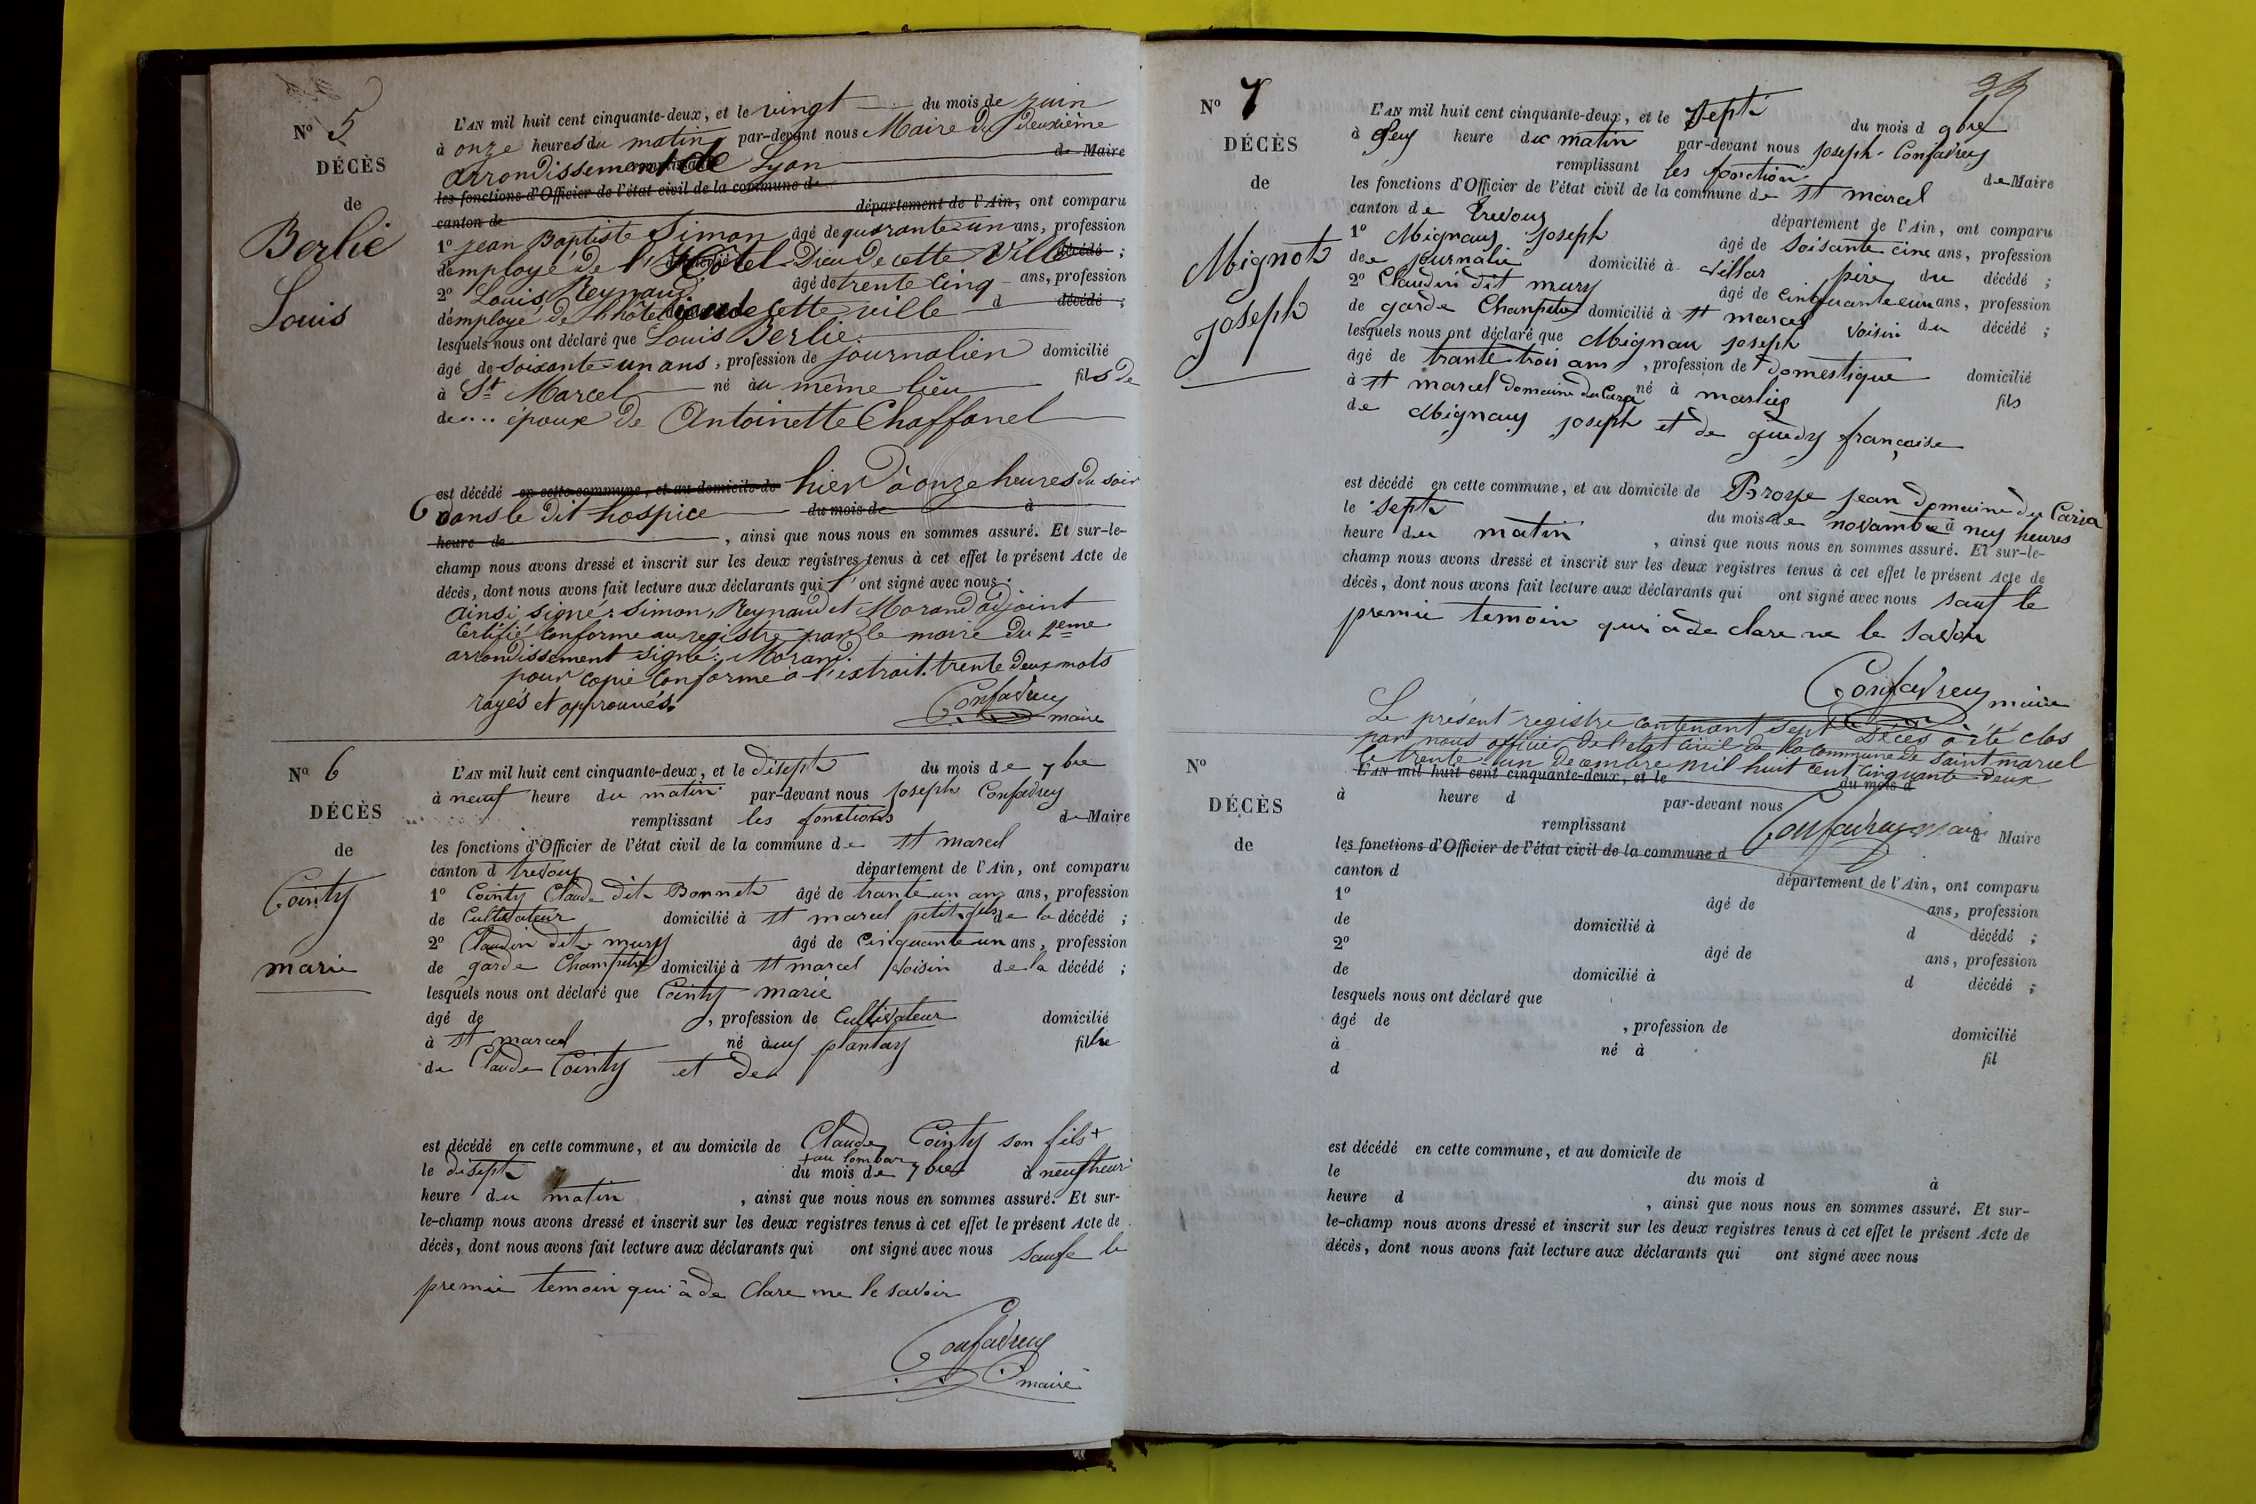 N° 5
DÉCÈS
de
Berlie
Louis
L'AN mil huit cent cinquante-deux, et le vingt du mois de juin
à onze heures du matin par-devant nous Maire du deuxième
arrondissement de Lyon de Maire
les fonctions d'Officier de l'état civil de la commune de
canton de département de l'Ain, ont comparu
1° jean Baptiste Simon âgé de quarante un ans, profession
demployé de l'Hôtel Dieu De cette Ville décédé ;
2° Louis Reynaud âgé de trente cinq ans, profession
demployé de l'hôtel dieu de cette ville d décédé ;
lesquels nous ont déclaré que Louis Berlie
âgé de soixante un ans, profession de journalien domicilié
à St Marcel né au même lieu fils de
de.... époux de Antoinette Chaffanel
est décédé en cette commune, et au domicile de hier à onze heures du soir
dans le dit hospice du mois de à
heure de , ainsi que nous nous en sommes assuré. Et sur-le-
champ nous avons dressé et inscrit sur les deux registres tenus à cet effet le présent Acte de
décès, dont nous avons fait lecture aux déclarants qui l'ont signé avec nous.
ainsi signé : Simon, Reynaud et Morand adjoint
Certifié conforme au registre par le maire du 2eme
arrondissement signé : Morand.
pour copie conforme à l'extrait. trente deux mots
rayés et approuvés.
Confavreux
maire
N° 6
DÉCÈS
de
Cointy
marie
L'AN mil huit cent cinquante-deux, et le disept du mois de 7bre
à neuf heure du matin par-devant nous joseph Confavreux
remplissant les fonctions de Maire
les fonctions d'Officier de l'état civil de la commune de st marcel
canton d trevoux département de l'Ain, ont comparu
1° Cointy Claude dit Bonnet âgé de trante un ans ans, profession
de Cultivateur domicilié à st marcel petit fils de la décédé ;
2° Claudin dit mury âgé de cinquante un ans, profession
de garde Champetre domicilié à st marcel voisin de la décédé ;
lesquels nous ont déclaré que Cointy marie
âgé de , profession de cultivateur domicilié
à st marcel né à plantay fille
de Claude Cointy et de
est décédé en cette commune, et au domicile de Claude Cointy son fils +
+ au lombar
le disept du mois de 7bre à neuf heur
heure du matin , ainsi que nous nous en sommes assuré. Et sur-
le-champ nous avons dressé et inscrit sur les deux registres tenus à cet effet le présent Acte de
décès, dont nous avons fait lecture aux déclarants qui ont signé avec nous saufe le
premie temoin qui à de clare ne le savoir
Confavreux
maire
23
N° 7
DÉCÈS
de
Mignot
joseph
L'AN mil huit cent cinquante-deux, et le sept du mois d 9bre
à heure du matin par-devant nous joseph Confavreux
remplissant les fonction de Maire
les fonctions d'Officier de l'état civil de la commune de st marcel
canton de trevoux département de l'Ain, ont comparu
1° Mignaux joseph âgé de soisante cinc ans, profession
de journalie domicilié à villar père du décédé ;
2° Claudin dit mury âgé de cinquante un ans, profession
de garde Champetre domicilié à st marcel voisin du décédé ;
lesquels nous ont déclaré que Mignau joseph
âgé de trante trois ans, profession de domestique domicilié
à st marcel domaine du né à marlieu fils
de Mignaux joseph et de françoise
est décédé en cette commune, et au domicile de jean domaine du
le sept du mois de novambre à heures
heure du matin , ainsi que nous nous en sommes assuré. Et sur-le-
champ nous avons dressé et inscrit sur les deux registres tenus à cet effet le présent Acte de
décès, dont nous avons fait lecture aux déclarants qui ont signé avec nous sauf le
premie temoin qui à de clare ne le savoir
Confavreux maire
Le présent registre contenant sept Décès a été clos
par nous officier de l'état civil de la commune de saint marcel
le trente un decembre mil huit cent cinquante deux
N°
DÉCÈS
de
L'AN mil huit cent cinquante-deux, et le du mois d
à heure d par-devant nous
remplissant Confavreux maire d Maire
les fonctions d'Officier de l'état civil de la commune d
canton d département de l'Ain, ont comparu
1° âgé de ans, profession
de domicilié à d décédé ;
2° âgé de ans, profession
de domicilié à d décédé ;
lesquels nous ont déclaré que
âgé de , profession de domicilié
à né à fil
d
est décédé en cette commune, et au domicile de
le du mois d à
heure d , ainsi que nous nous en sommes assuré. Et sur-
le-champ nous avons dressé et inscrit sur les deux registres tenus à cet effet le présent Acte de
décès, dont nous avons fait lecture aux déclarants qui ont signé avec nous